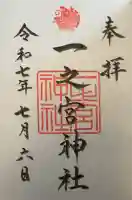 奉拝
一之宮神社
令和七年七月六日